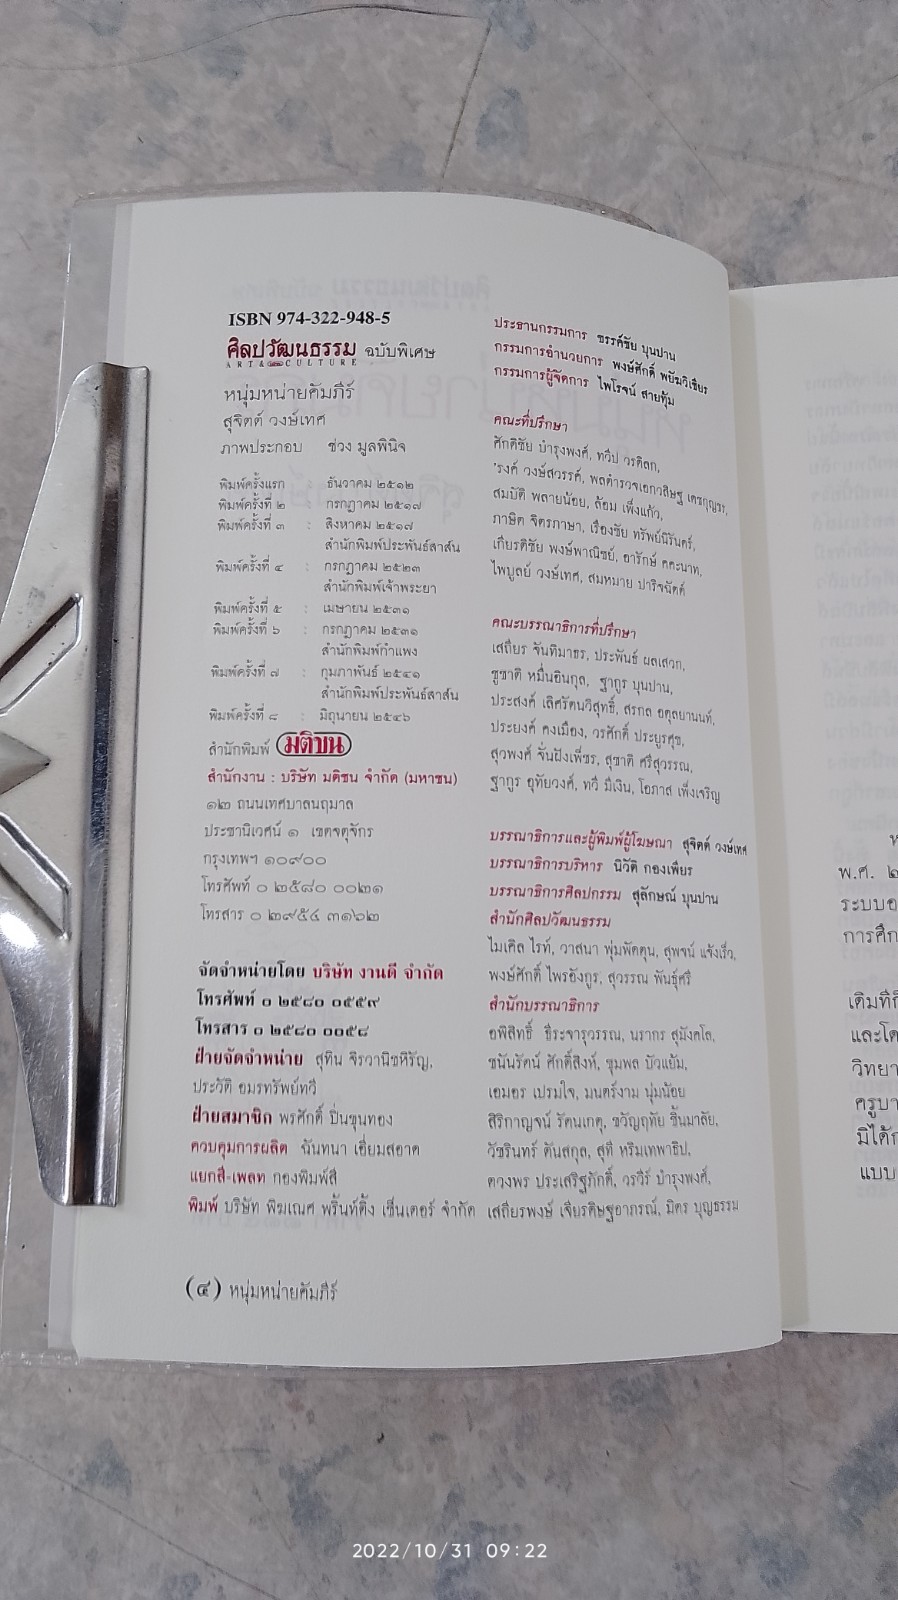 ISBN 974-322-948-5
ศิลปวัฒนธรรม ฉบับพิเศษ
ART & CULTURE
หนุ่มหน่ายคัมภีร์
สุจิตต์ วงษ์เทศ
ภาพประกอบ ช่วง มูลพินิจ
พิมพ์ครั้งแรก ธันวาคม ๒๕๑๒
พิมพ์ครั้งที่ ๒ กรกฎาคม ๒๕๑๗
พิมพ์ครั้งที่ ๓ : สิงหาคม ๒๕๑๗
สำนักพิมพ์ประพันธ์สาส์น
พิมพ์ครั้งที่ ๔ : กรกฎาคม ๒๕๒๓
สำนักพิมพ์เจ้าพระยา
พิมพ์ครั้งที่ ๕ : เมษายน ๒๕๓๑
พิมพ์ครั้งที่ ๖ : กรกฎาคม ๒๕๓๑
สำนักพิมพ์กำแพง
พิมพ์ครั้งที่ ๗ : กุมภาพันธ์ ๒๕๔๑
สำนักพิมพ์ประพันธ์สาส์น
พิมพ์ครั้งที่ ๘ : มิถุนายน ๒๕๔๖
สำนักพิมพ์ มติชน
สำนักงาน : บริษัท มติชน จำกัด (มหาชน)
๑๒ ถนนเทศบาลนฤมาล
ประชานิเวศน์ ๑ เขตจตุจักร
กรุงเทพฯ ๑๐๙๐๐
โทรศัพท์ ๐ ๒๕๘๐ ๐๐๒๑
โทรสาร ๐ ๒๙๕๔ ๓๑๖๒
จัดจำหน่ายโดย บริษัท งานดี จำกัด
โทรศัพท์ ๐ ๒๕๘๐ ๐๕๕๙
โทรสาร ๐ ๒๕๘๐ ๐๐๕๘
ฝ่ายจัดจำหน่าย สุทิน จิรวานิชหิรัญ,
ประวัติ อมรทรัพย์ทวี
ฝ่ายสมาชิก พรศักดิ์ ปิ่นขุนทอง
ควบคุมการผลิต ฉันทนา เอี่ยมสอาด
แยกสี-เพลท กองพิมพ์สี
พิมพ์ บริษัท พิฆเณศ พริ้นท์ติ้ง เซ็นเตอร์ จำกัด
ประธานกรรมการ ขรรค์ชัย บุนปาน
กรรมการอำนวยการ พงษ์ศักดิ์ พยัฆวิเชียร
กรรมการผู้จัดการ ไพโรจน์ สายทุ้ม
คณะที่ปรึกษา
ศักดิชัย บำรุงพงศ์, ทวีป วรดิลก,
'รงค์ วงษ์สวรรค์, พลตำรวจเอกวสิษฐ เดชกุญชร,
สมบัติ พลายน้อย, ล้อม เพ็งแก้ว,
ภาษิต จิตรภาษา, เรืองชัย ทรัพย์นิรันดร์,
เกียรติชัย พงษ์พาณิชย์, อารักษ์ คคะนาท,
ไพบูลย์ วงษ์เทศ, สมหมาย ปาริจฉัตต์
คณะบรรณาธิการที่ปรึกษา
เสถียร จันทิมาธร, ประพันธ์ ผลเสวก,
ชูชาติ หมื่นอินกุล, ฐากูร บุนปาน,
ประสงค์ เลิศรัตนวิสุทธิ์, สรกล อดุลยานนท์,
ประยงค์ คงเมือง, วรศักดิ์ ประยูรศุข,
สุวพงศ์ จั่นฝังเพ็ชร, สุชาติ ศรีสุวรรณ,
ฐากูร อุทัยวงศ์, ทวี มีเงิน, โอภาส เพ็งเจริญ
บรรณาธิการและผู้พิมพ์ผู้โฆษณา สุจิตต์ วงษ์เทศ
บรรณาธิการบริหาร นิวัติ กองเพียร
บรรณาธิการศิลปกรรม สุลักษณ์ บุนปาน
สำนักศิลปวัฒนธรรม
ไมเคิล ไรท์, วาสนา พุ่มพัดตุน, สุพจน์ แจ้งเร็ว,
พงษ์ศักดิ์ ไพรอังกูร, สุวรรณ พันธุ์ศรี
สำนักบรรณาธิการ
อพิสิทธิ์ ธีระจารุวรรณ, นรากร สุมังคโล,
ชนันรัตน์ ศักดิ์สิงห์, ชุมพล บัวแย้ม,
เอมอร เปรมใจ, มนตร์งาม นุ่มน้อย
สิริกาญจน์ รัตนเกตุ, ขวัญฤทัย ชื้นมาลัย,
วัชรินทร์ ตันสกุล, สุที หริมเทพาธิป,
ดวงพร ประเสริฐภักดิ์, วรวีร์ บำรุงพงศ์,
เสถียรพงษ์ เจียรดิษฐอาภรณ์, มิตร บุญธรรม
(๔) หนุ่มหน่ายคัมภีร์
พ.ศ. ๒
ระบบอ
การศึก
เดิมที่ก็
และโด
วิทยา
ครูบา
มิได้ก
แบบ
2022/10/31 09:22